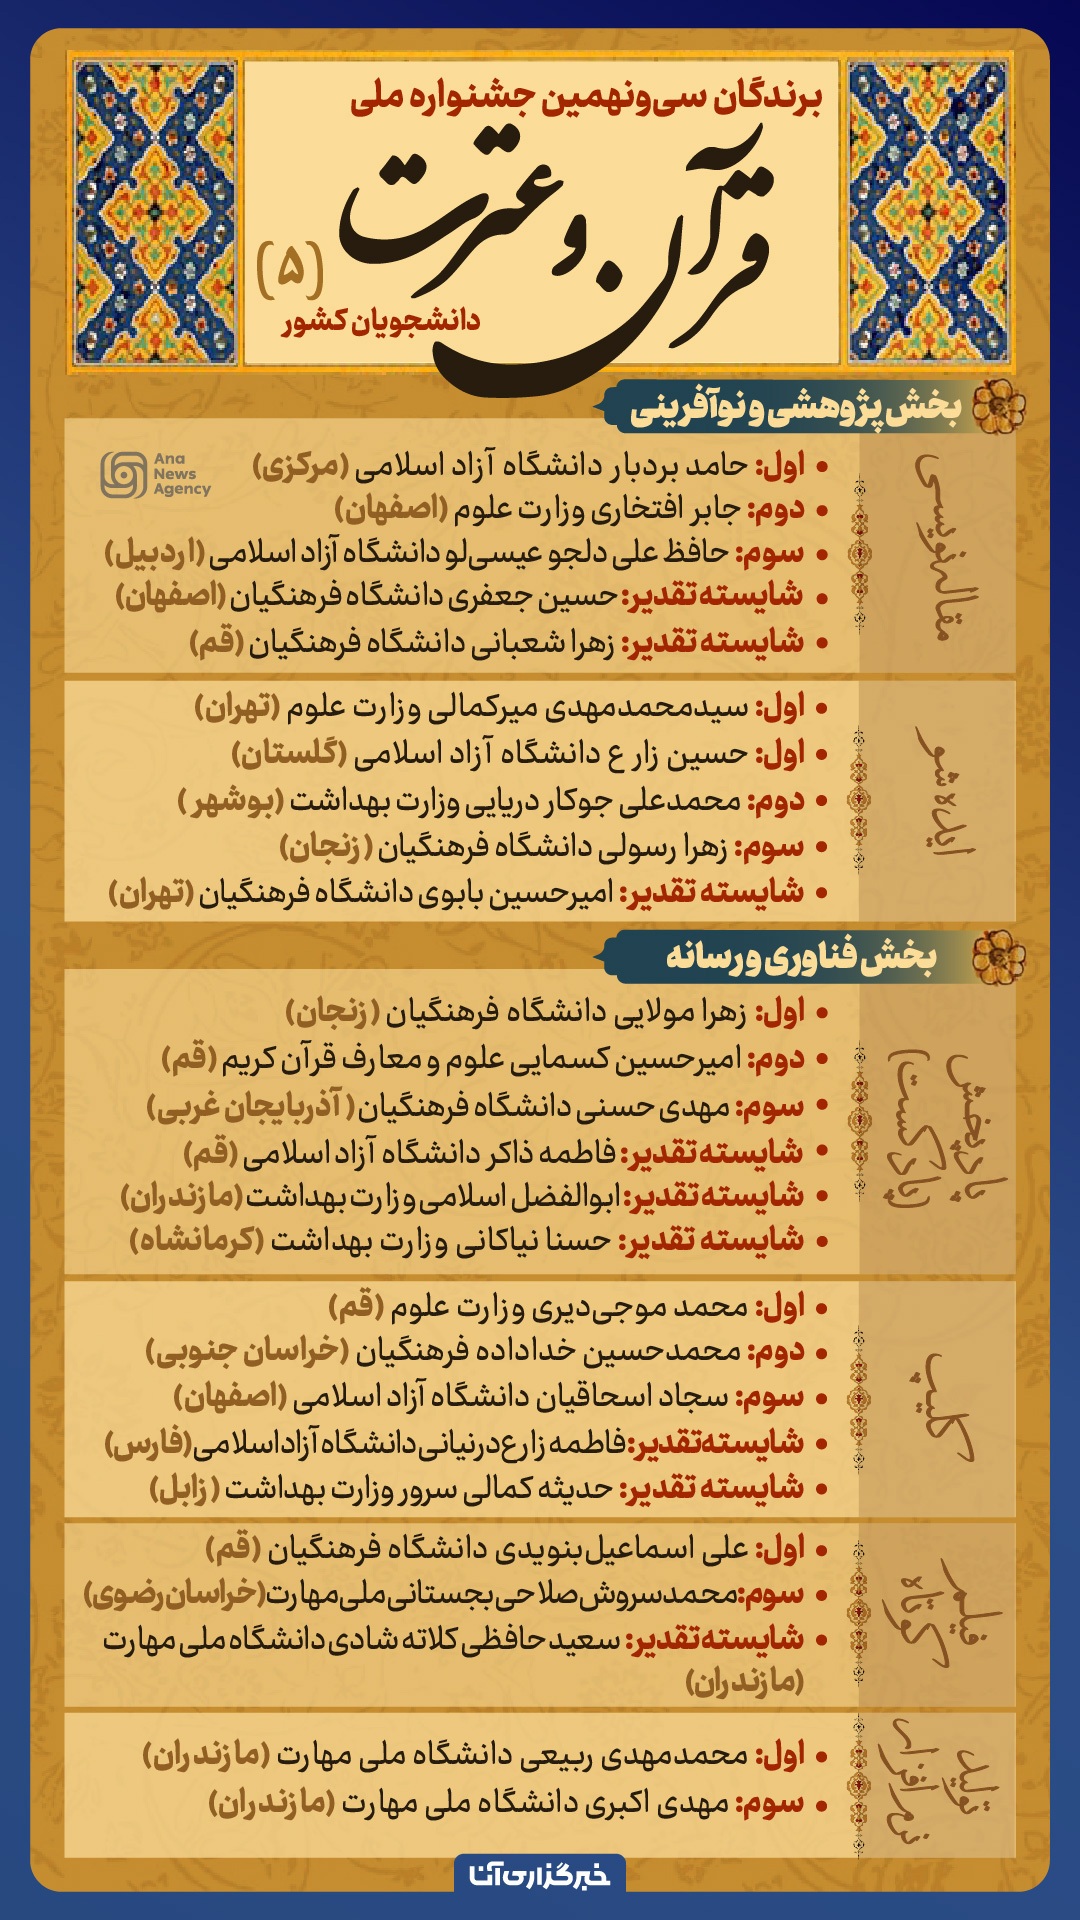 برندگان سی‌ونهمین جشنواره ملی
قرآن و عترت
(۵)
دانشجویان کشور
بخش پژوهشی و نوآفرینی
Ana
News
Agency
مقاله‌نویسی
اول: حامد بردبار دانشگاه آزاد اسلامی (مرکزی)
دوم: جابر افتخاری وزارت علوم (اصفهان)
سوم: حافظ علی دلجو عیسی‌لو دانشگاه آزاد اسلامی (اردبیل)
شایسته تقدیر: حسین جعفری دانشگاه فرهنگیان (اصفهان)
شایسته تقدیر: زهرا شعبانی دانشگاه فرهنگیان (قم)
ایده شو
اول: سیدمحمدمهدی میرکمالی وزارت علوم (تهران)
اول: حسین زارع دانشگاه آزاد اسلامی (گلستان)
دوم: محمدعلی جوکار دریایی وزارت بهداشت (بوشهر)
سوم: زهرا رسولی دانشگاه فرهنگیان (زنجان)
شایسته تقدیر: امیرحسین بابوی دانشگاه فرهنگیان (تهران)
بخش فناوری و رسانه
پادپخش
(پادکست)
اول: زهرا مولایی دانشگاه فرهنگیان (زنجان)
دوم: امیرحسین کسمایی علوم و معارف قرآن کریم (قم)
سوم: مهدی حسنی دانشگاه فرهنگیان (آذربایجان غربی)
شایسته تقدیر: فاطمه ذاکر دانشگاه آزاد اسلامی (قم)
شایسته تقدیر: ابوالفضل اسلامی وزارت بهداشت (مازندران)
شایسته تقدیر: حسنا نیاکانی وزارت بهداشت (کرمانشاه)
کلیپ
اول: محمد موجی‌دیری وزارت علوم (قم)
دوم: محمدحسین خداداده فرهنگیان (خراسان جنوبی)
سوم: سجاد اسحاقیان دانشگاه آزاد اسلامی (اصفهان)
شایسته‌تقدیر: فاطمه زارع‌درنیانی دانشگاه آزاد اسلامی (فارس)
شایسته تقدیر: حدیثه کمالی سرور وزارت بهداشت (زابل)
فیلم
کوتاه
اول: علی اسماعیل‌بنویدی دانشگاه فرهنگیان (قم)
سوم: محمدسروش‌صلاحی‌بجستانی ملی‌مهارت (خراسان‌رضوی)
شایسته تقدیر: سعید حافظی کلاته شادی دانشگاه ملی مهارت
(مازندران)
تولید
نرم افزار
اول: محمدمهدی ربیعی دانشگاه ملی مهارت (مازندران)
سوم: مهدی اکبری دانشگاه ملی مهارت (مازندران)
خبرگزاری آنا